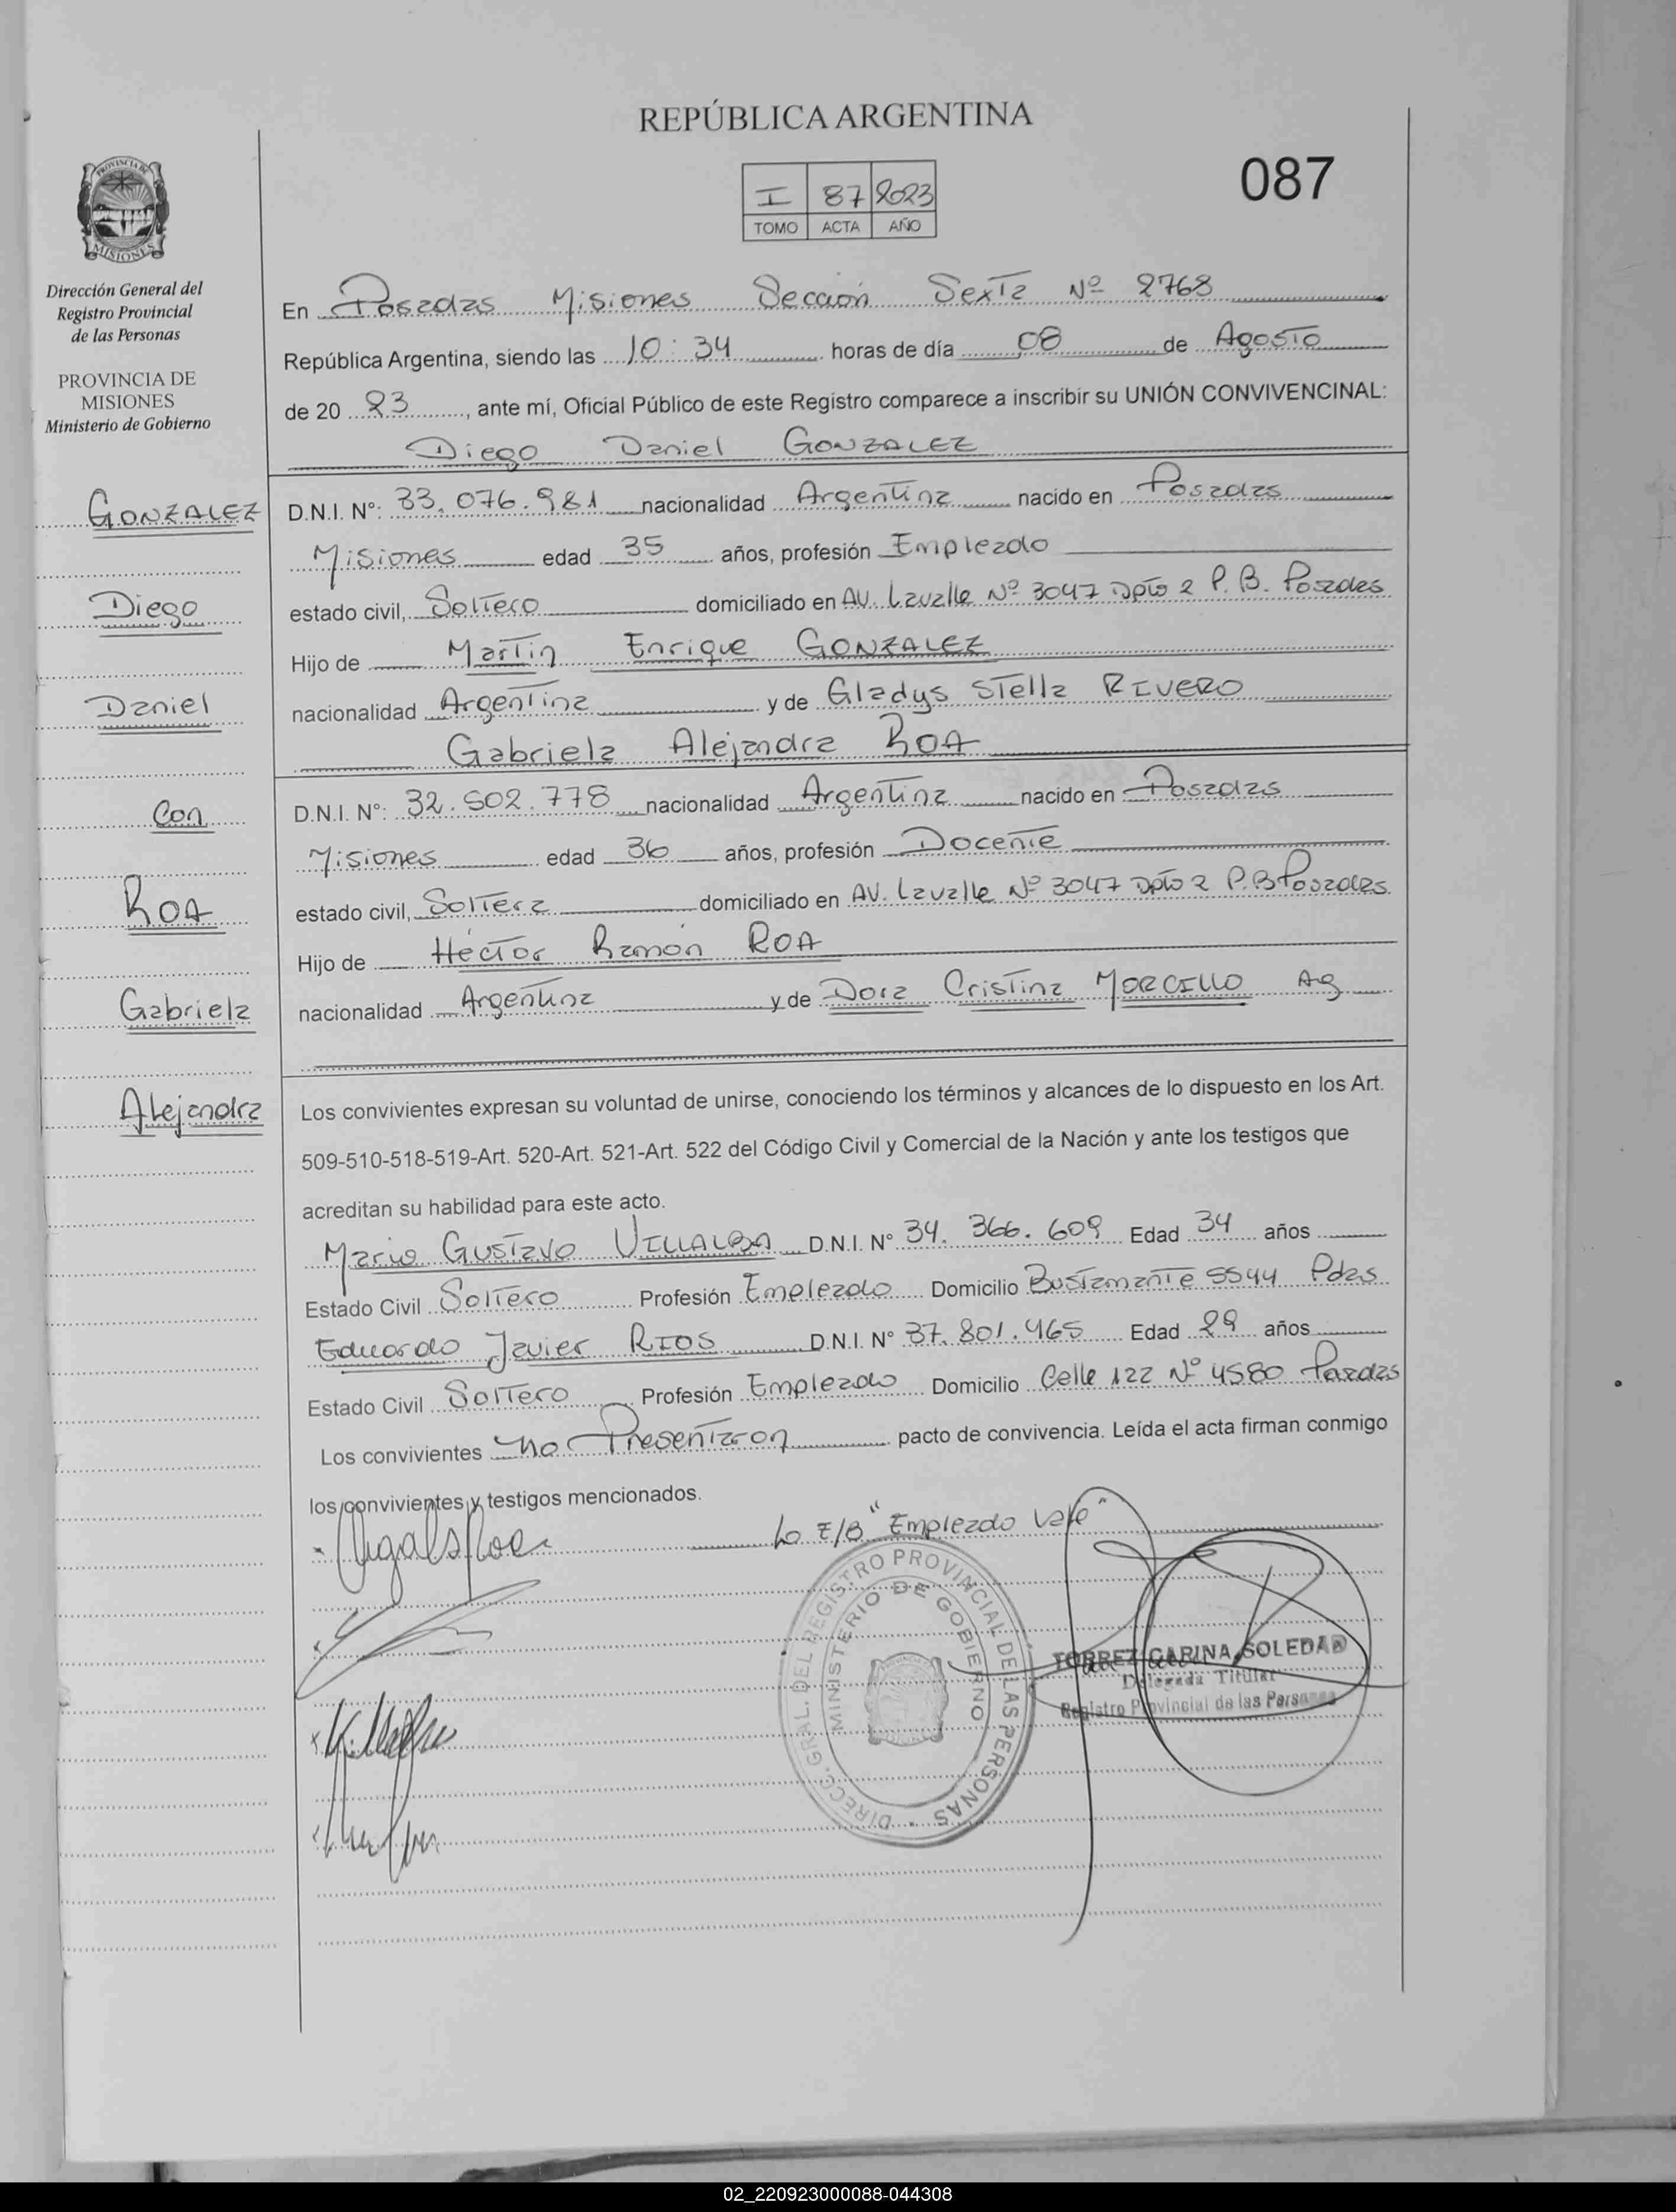 REPÚBLICA ARGENTINA
087
I 87 2023
TOMO ACTA AÑO
PROVINCIA DE
MISIONES
Dirección General del
Registro Provincial
de las Personas
PROVINCIA DE
MISIONES
Ministerio de Gobierno
GONZALEZ
Diego
Daniel
Con
ROA
Gabriela
Alejandra
En Posadas Misiones Sección Sexta Nº 2768
República Argentina, siendo las 10:34 horas de día 08 de Agosto
de 20 23, ante mí, Oficial Público de este Registro comparece a inscribir su UNIÓN CONVIVENCINAL:
Diego Daniel GONZALEZ
D.N.I. N°: 33.076.981 nacionalidad Argentina nacido en Posadas
Misiones edad 35 años, profesión Empleado
estado civil, Soltero domiciliado en AV. Lavalle Nº 3047 Dpto 2 P.B. Posadas
Hijo de Martin Enrique GONZALEZ
nacionalidad Argentina y de Gladys Stella RIVERO
Gabriela Alejandra ROA
D.N.I. N°: 32.502.778 nacionalidad Argentina nacido en Posadas
Misiones edad 36 años, profesión Docente
estado civil, Soltera domiciliado en AV. Lavalle Nº 3047 Dpto 2 P.B Posadas
Hijo de Héctor Ramón ROA
nacionalidad Argentina y de Dora Cristina MORCILLO Ag
Los convivientes expresan su voluntad de unirse, conociendo los términos y alcances de lo dispuesto en los Art.
509-510-518-519-Art. 520-Art. 521-Art. 522 del Código Civil y Comercial de la Nación y ante los testigos que
acreditan su habilidad para este acto.
Mario Gustavo VILLALBA D.N.I. N° 34.366.609 Edad 34 años
Estado Civil Soltero Profesión Empleado Domicilio Bustamante 5544 Pdas
Eduardo Javier RIOS D.N.I. N° 37.801.465 Edad 29 años
Estado Civil Soltero Profesión Empleado Domicilio Calle 122 Nº 4580 Posadas
Los convivientes no Presentaron pacto de convivencia. Leída el acta firman conmigo
los convivientes y testigos mencionados.
Lo E/B "Empleado Vale"
DIRECC. GRAL. DEL REGISTRO PROVINCIAL DE LAS PERSONAS
MINISTERIO DE GOBIERNO
TORREZ CARINA SOLEDAD
Delegada Titular
Registro Provincial de las Personas
02_220923000088-044308